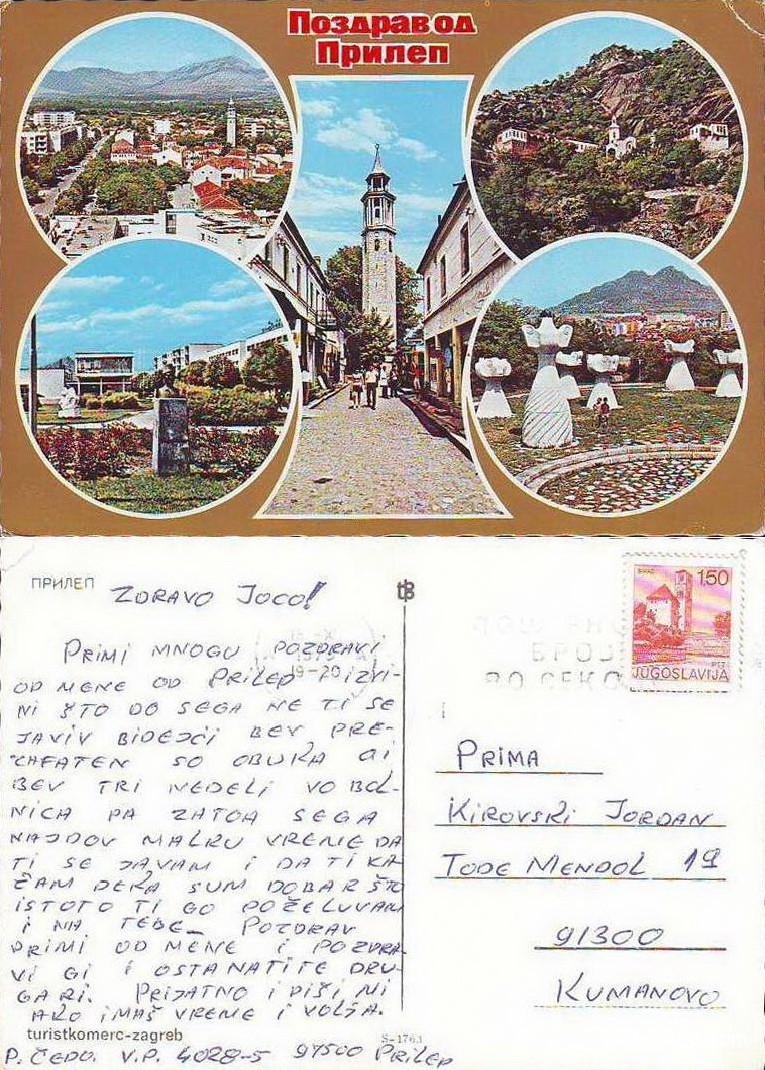 Поздрав од
Прилеп
ПРИЛЕП
ZDRAVO JOCO!
PRIMI MNOGU POZDRAVI
OD MENE OD PRILEP IZVI-
NI ŠTO DO SEGA NE TI SE
JAVIV BIDEJĆI BEV PRE-
CAFATEN SO OBUKA
BEV TRI NEDELI VO BOL-
NICA PA ZATOA SEGA
NAJDOV MALKU VREME DA
TI SE JAVAM I DA TI KA-
ŽAM DEKA SUM DOBAR ŠTO
ISTOTO TI GO POŽELUVAM
I NA TEBE. POZDRAV
PRIMI OD MENE I POZDRA-
VI GI I OSTANATITE DRU-
GARI. PRIJATNO I PIŠI MI
AKO IMAŠ VREME I VOLJA.
turistkomerc-zagreb
S-1763
P. ČEDO. V.P. 4028-5 97500 PRILEP
19-20
БРОЈ
BIHAĆ
1.50
PTT
JUGOSLAVIJA
PRIMA
KIROVSKI JORDAN
TODE MENDOL 19
91300
KUMANOVO